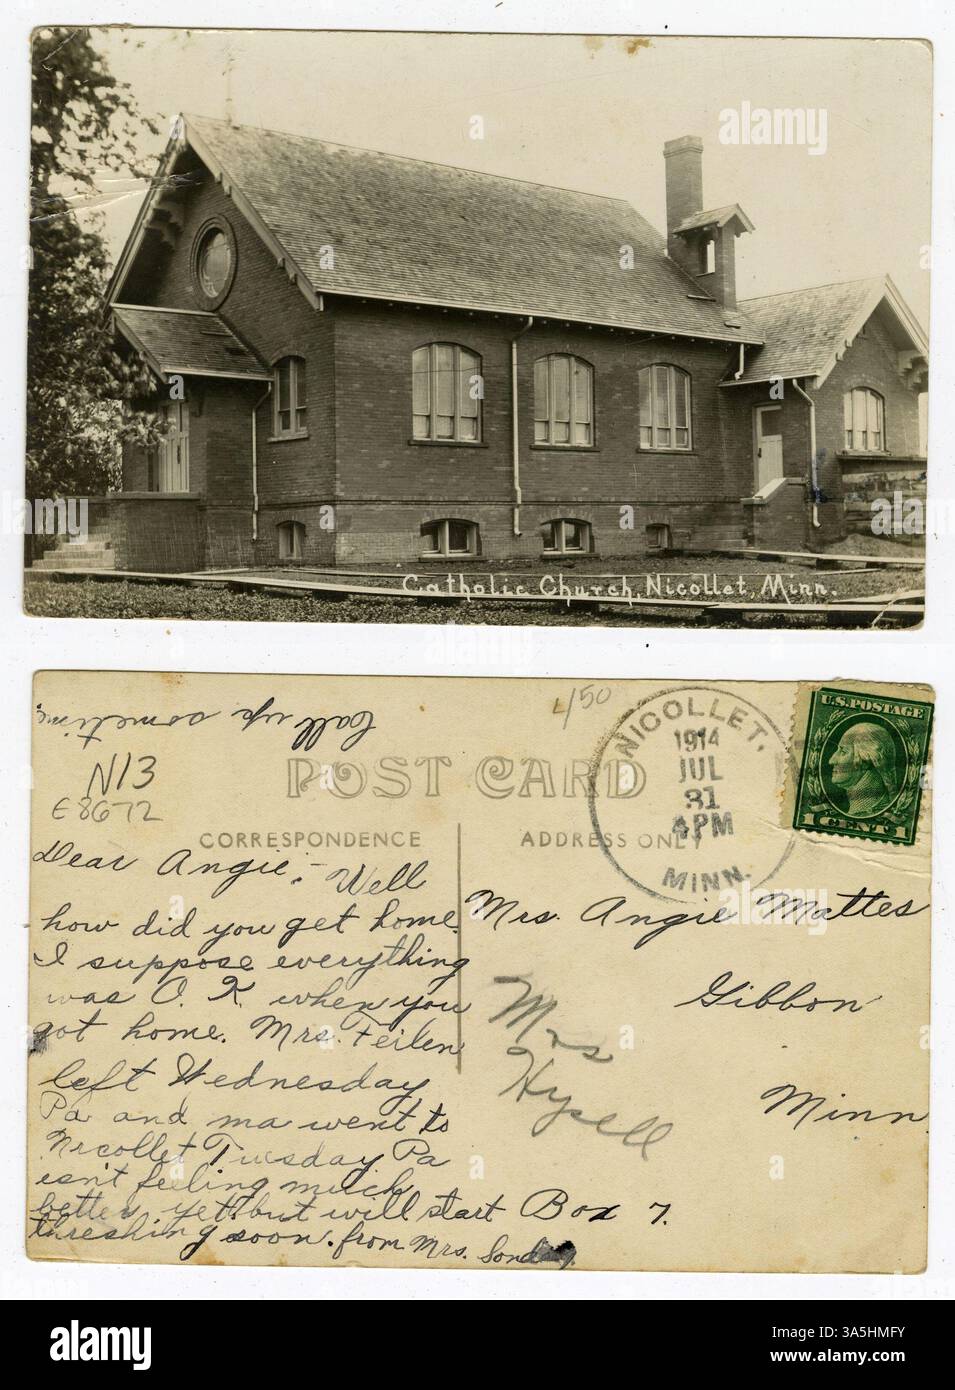 Catholic Church, Nicollet, Minn.
Call up sometime.
N13
E8672
4/50
POST CARD
CORRESPONDENCE
ADDRESS ONLY
NICOLLET,
1914
JUL
31
4 PM
MINN.
U.S. POSTAGE
1 CENT 1
Dear Angie:- Well
how did you get home.
I suppose everything
was O. K. when you
got home. Mrs. Feilen
left Wednesday
Pa and ma went to
Nicollet Tuesday Pa
isn't feeling much
better yet but will start
threshing soon. from Mrs. Sonday.
Mrs. Angie Mattes
Gibbon
Minn.
Box 7.
Mrs
Hysell
alamy
Image ID: 3A5HMFY
www.alamy.com